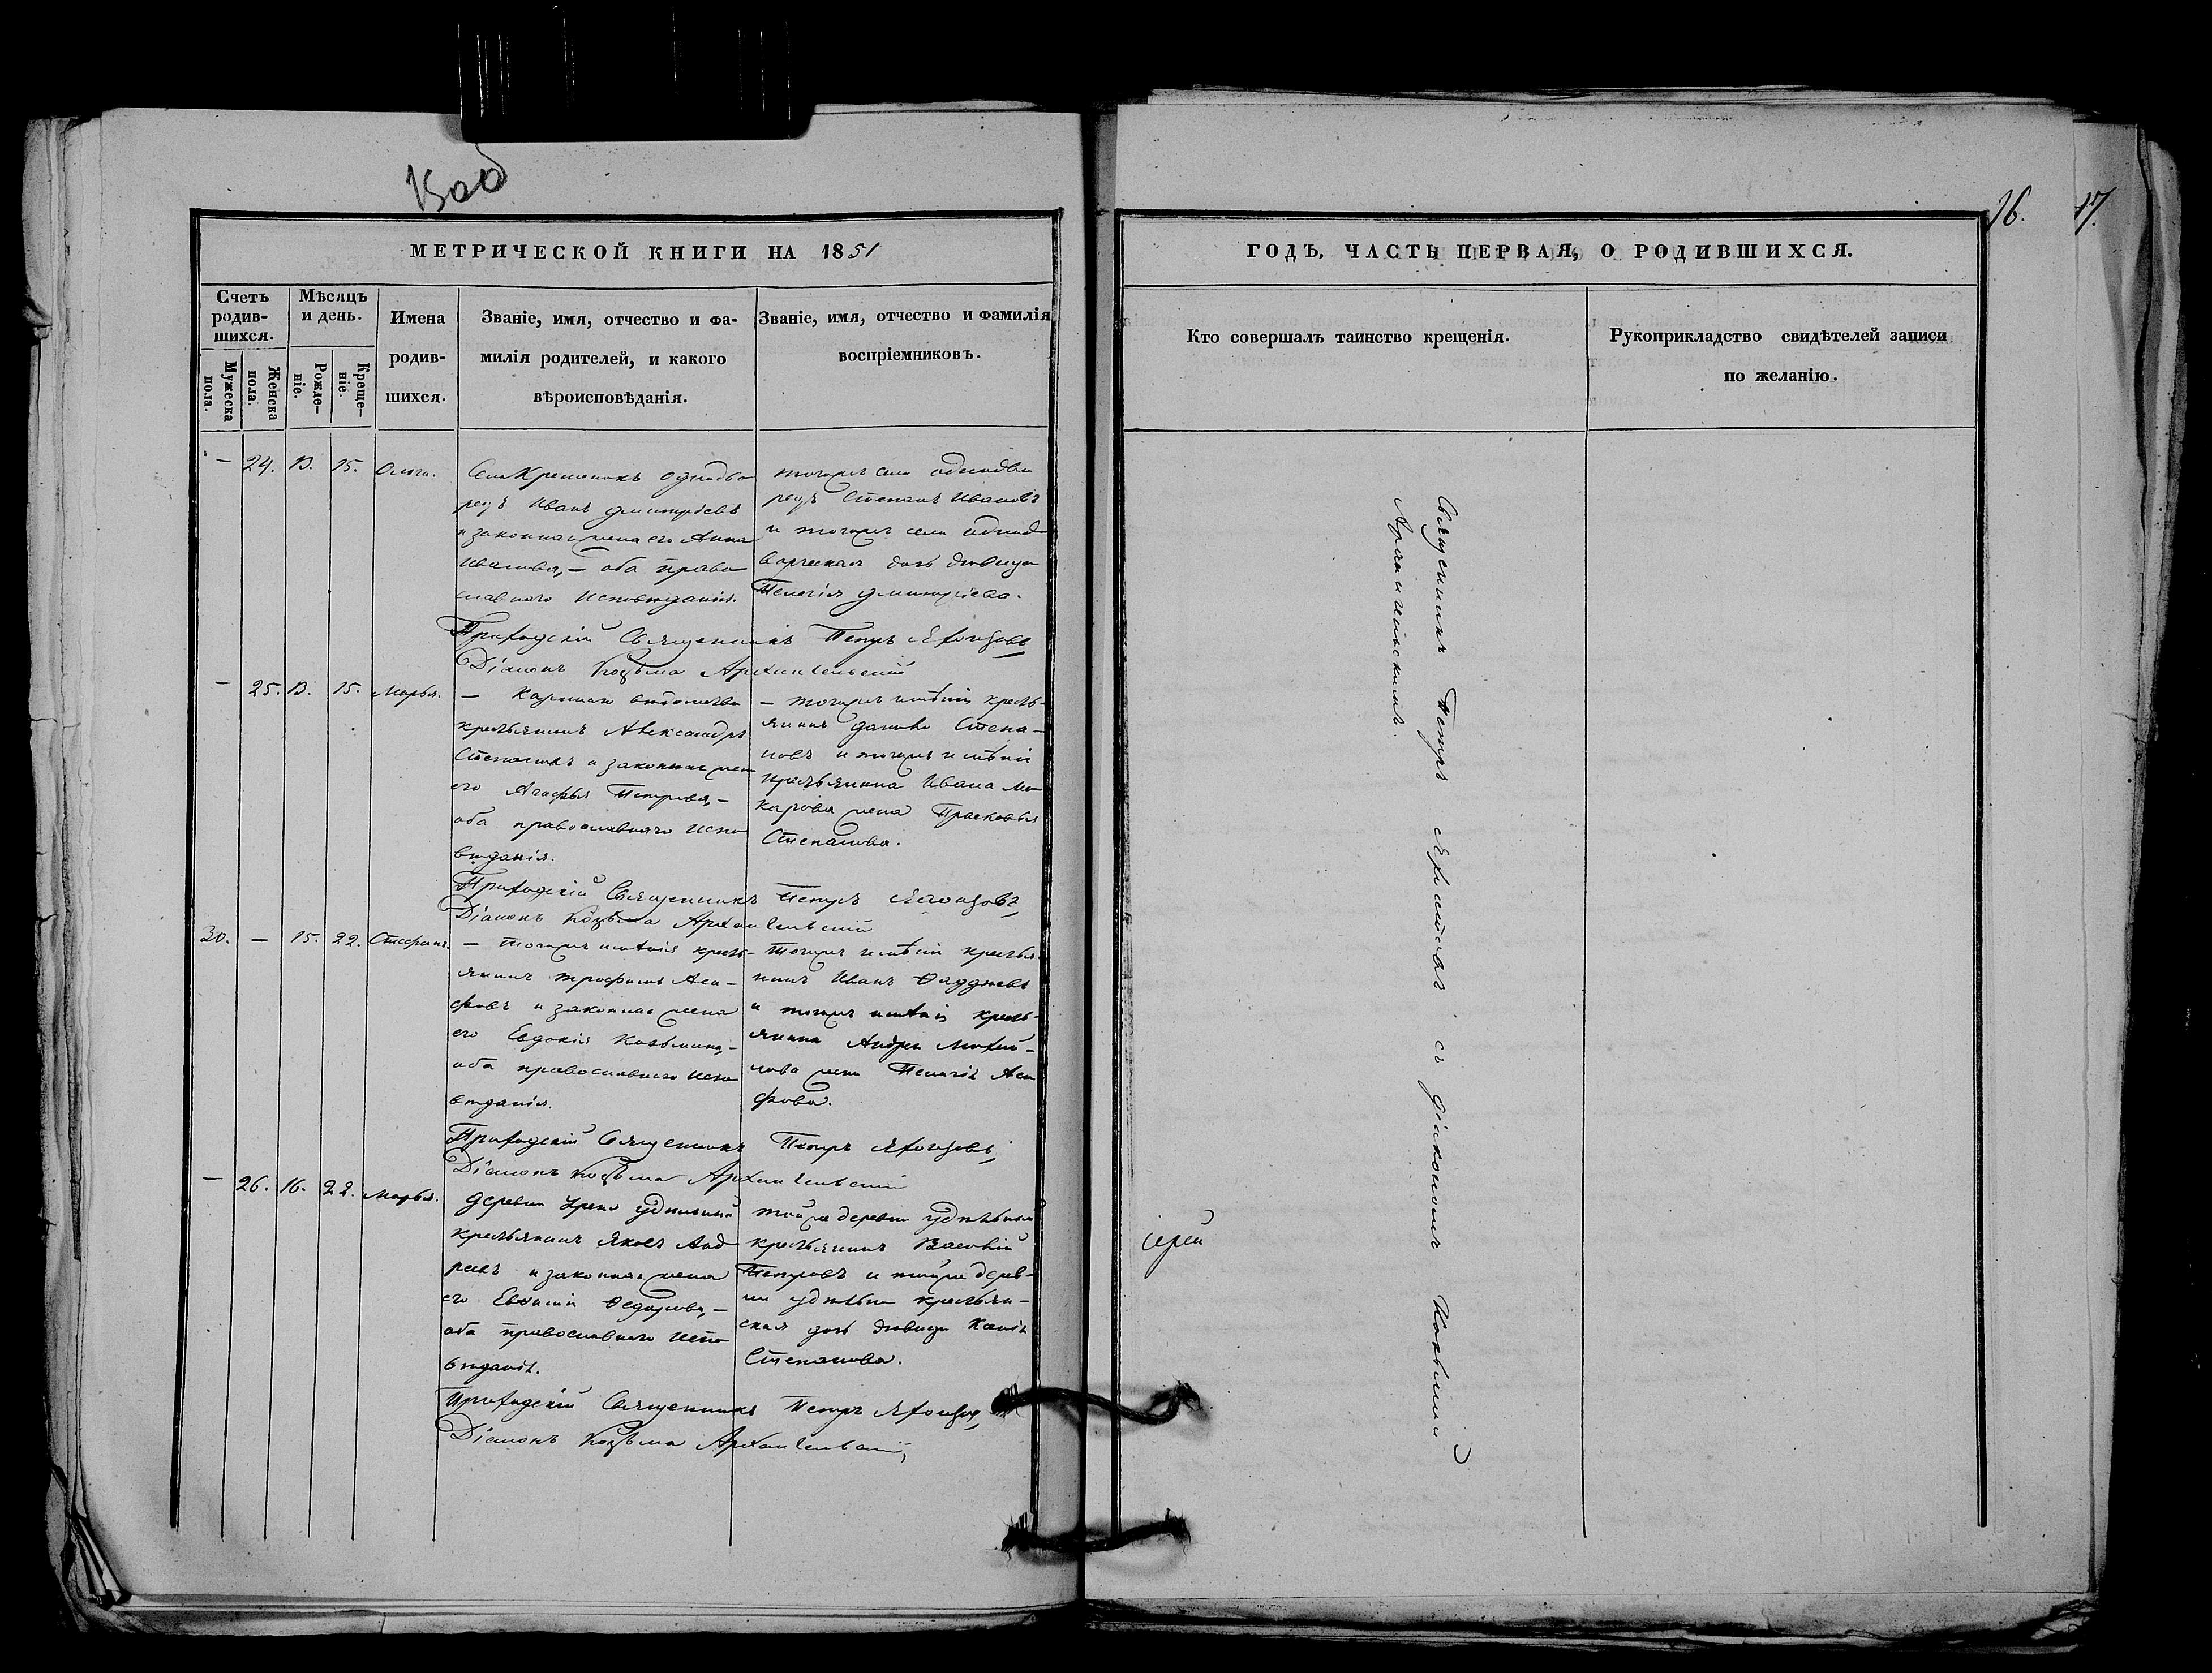 МЕТРИЧЕСКОЙ КНИГИ НА 1851
Счетъ родив-
шихся.
Мужеска пола.
Женска пола.
Мѣсяцъ и день.
Рожде-
ніе.
Креще-
ніе.
Имена
родив-
шихся.
Званіе, имя, отчество и фа-
милія родителей, и какого
вѣроисповѣданія.
Званіе, имя, отчество и фамилія
воспріемниковъ.
— 24. 13. 15. Ольга.
Села однодво
рецъ Иванъ Дмитріевъ
и законная жена его Анна
Иванова, — оба право
славнаго исповѣданія.
тогожъ села однодво
рецъ Степанъ Ивановъ
и тогожъ села однод
ворческая дочь дѣвица
Пелагія Дмитріева.
Приходскій Священникъ Петръ
Діаконъ Козьма Архангельскій
— 25. 13. 15. Марья.
— вѣдомства
крестьянинъ Александръ
Степановъ и законная жена
его Агафья Петрова, —
оба православнаго испо
вѣданія.
— тогожъ имѣнія кресть-
янинъ Степа-
новъ и тогожъ имѣнія
крестьянина Ивана Ма
карова жена Прасковья
Степанова.
Приходскій Священникъ Петръ
Діаконъ Козьма Архангельскій
30. — 15. 22. Стефанъ.
— тогожъ имѣнія кресть-
янинъ Трофимъ Аса-
фовъ и законная жена
его Евдокія Козьмина, —
оба православнаго испо
вѣданія.
Тогожъ имѣнія крестья
нинъ Иванъ Ѳаддѣевъ
и тогожъ имѣнія кресть-
янина Андрея Михай-
лова жена Пелагія Аса
фова.
Приходскій Священникъ Петръ
Діаконъ Козьма Архангельскій
— 26. 16. 22. Марья.
деревни удѣльный
крестьянинъ Яковъ Анд
реевъ и законная жена
его Ѳедорова, —
оба православнаго испо
вѣданія.
тойже деревни удѣльный
крестьянинъ Василій
Петровъ и тойже дерев-
ни удѣльно крестьян-
ская дочь дѣвица
Степанова.
Приходскій Священникъ Петръ
Діаконъ Козьма Архангельскій,
16. 17.
ГОДЪ, ЧАСТЬ ПЕРВАЯ, О РОДИВШИХСЯ.
Кто совершалъ таинство крещенія.
Рукоприкладство свидѣтелей записи
по желанію.
Священникъ Петръ съ діакономъ Козьмою
Архангельскимъ.